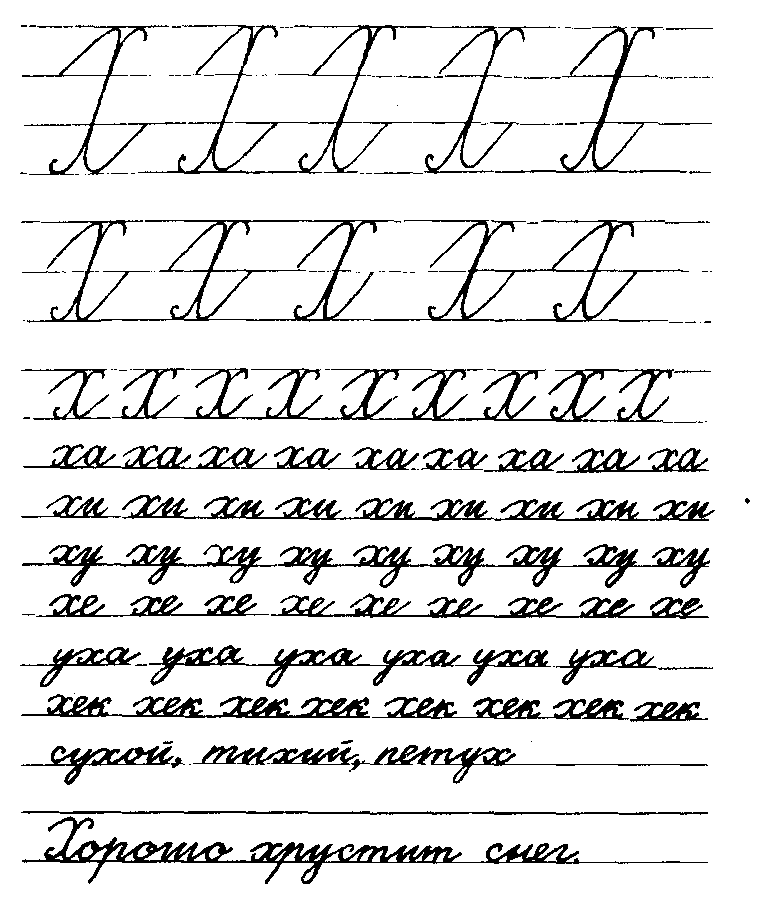 Х Х Х Х Х
Х Х Х Х Х
Х Х Х Х Х Х Х Х Х
ха ха ха ха ха ха ха ха ха
хи хи хи хи хи хи хи хи хи
ху ху ху ху ху ху ху ху ху
хе хе хе хе хе хе хе хе хе
уха уха уха уха уха уха
хек хек хек хек хек хек хек хек
сухой, тихий, петух
Хорошо хрустит снег.